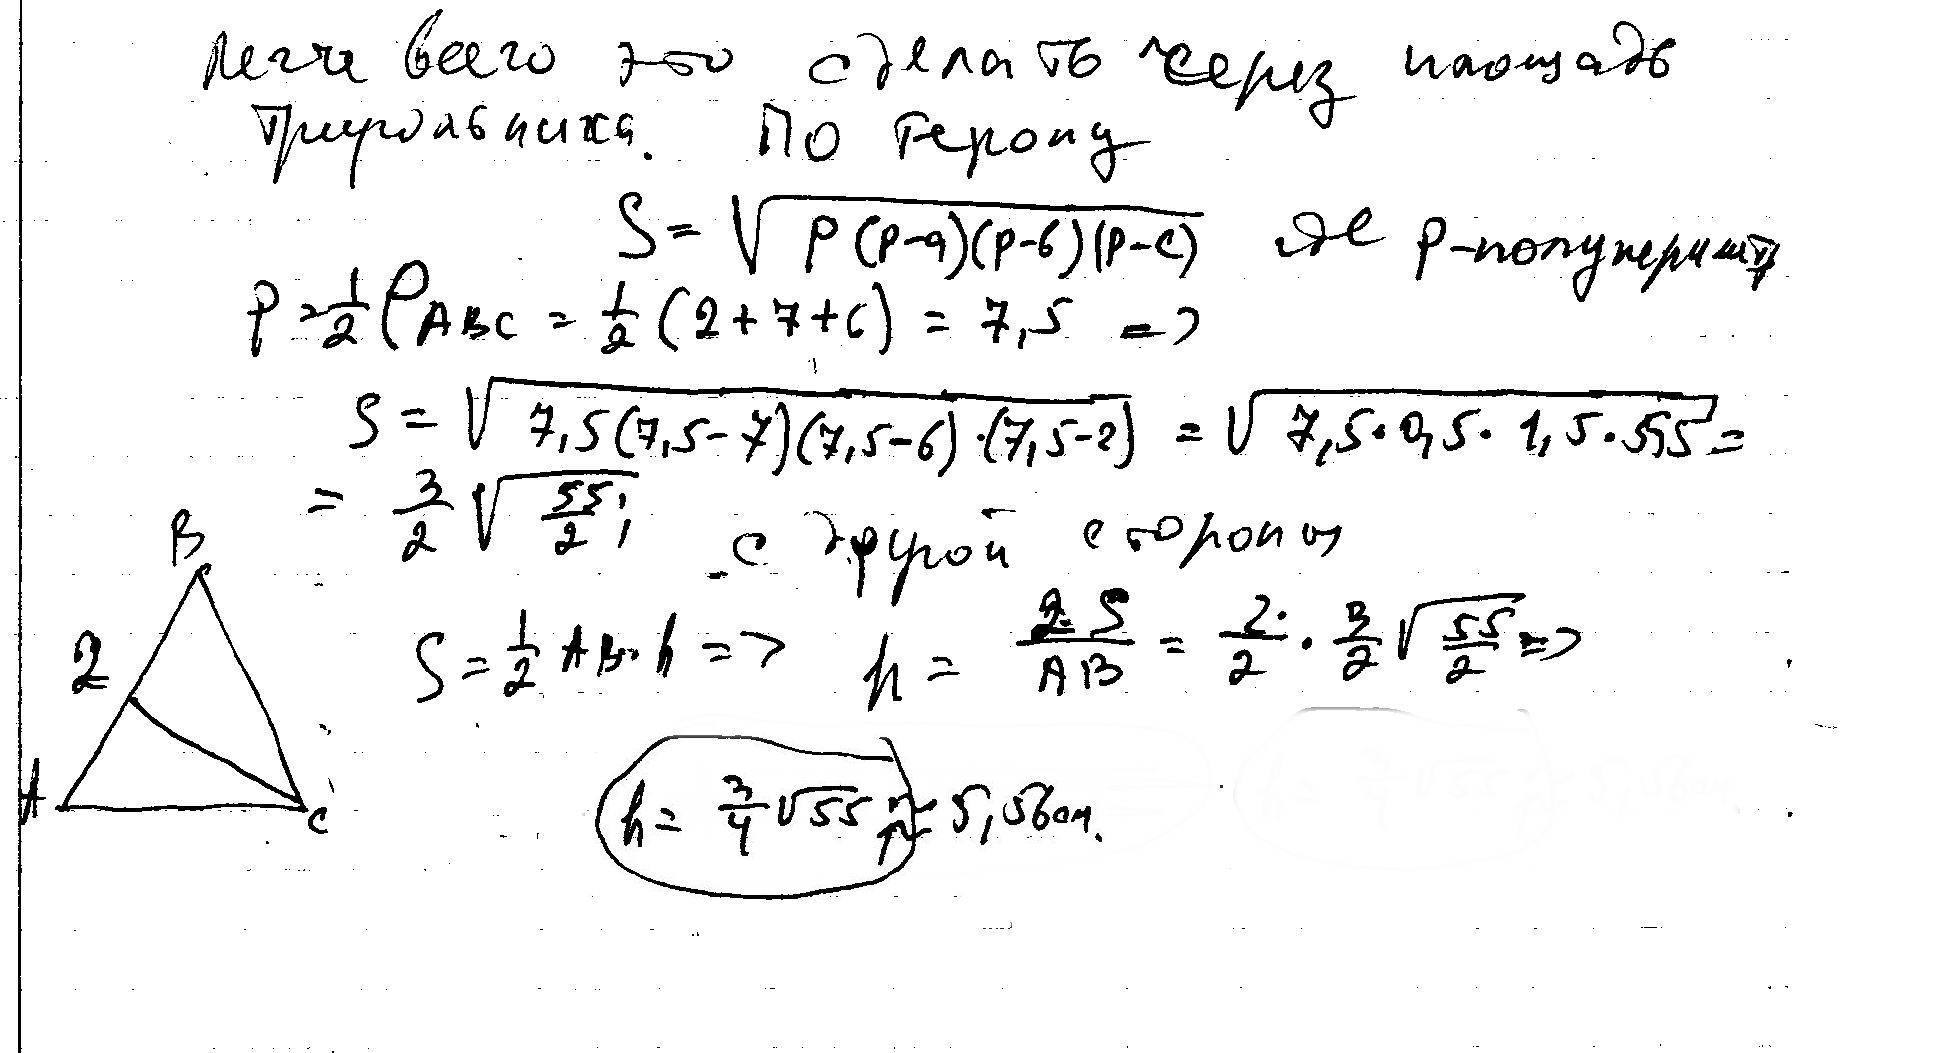 Легче всего это сделать через площадь
треугольника. По Герону
S = √(p(p-a)(p-b)(p-c)) где p-полупериметр
p = 1/2 P ABC = 1/2 (2+7+6) = 7,5 =>
S = √(7,5(7,5-7)(7,5-6)·(7,5-2)) = √(7,5·0,5·1,5·5,5) =
= 3/2 √(55/2);
с другой стороны
S = 1/2 AB·h => h = 2·S/AB = 2/2 · 3/2 √(55/2) =>
h = 3/4 √55 ≈ 5,56см.
B
2
A
C